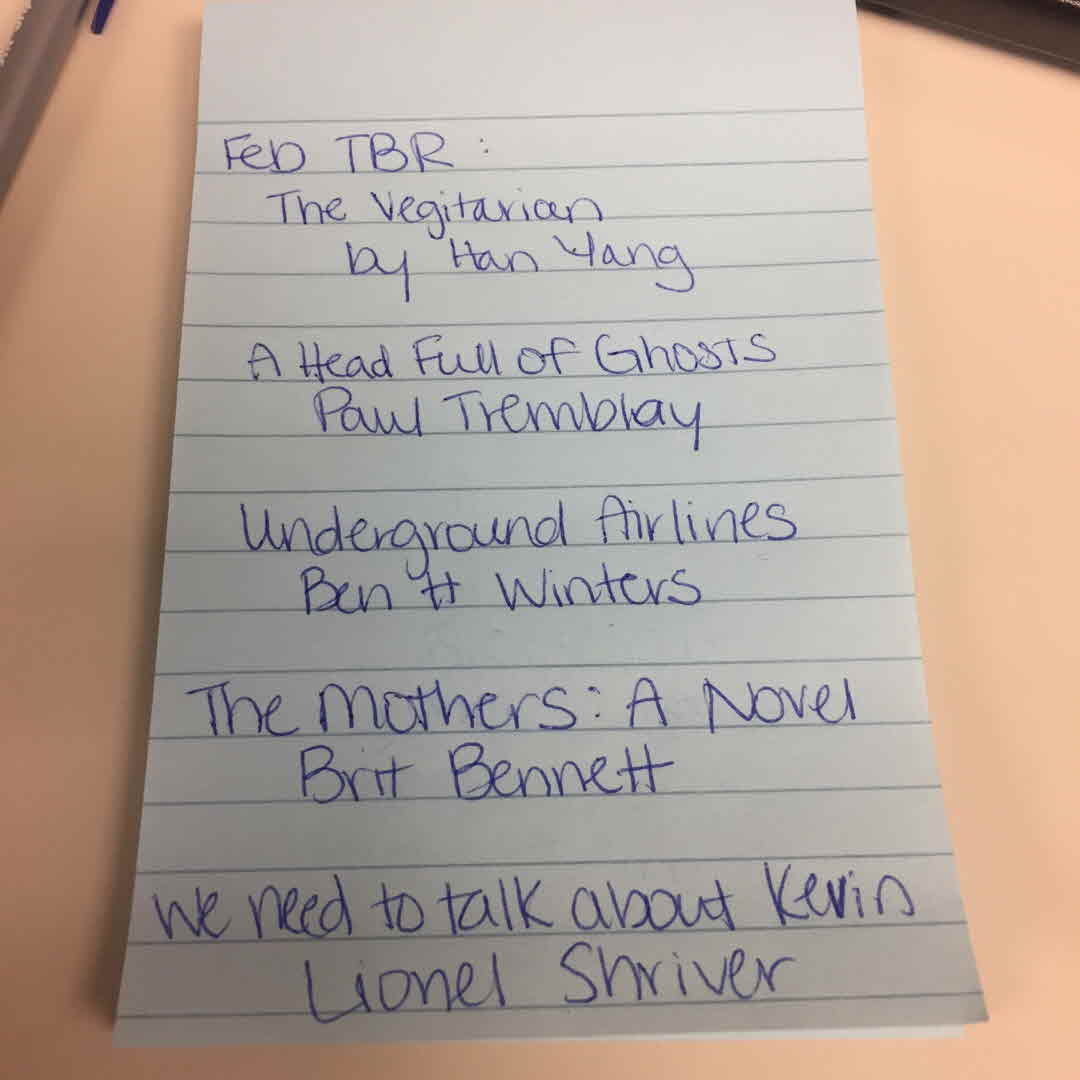 Feb TBR:
The Vegitarian
by Han Yang
A Head Full of Ghosts
Paul Tremblay
Underground Airlines
Ben H Winters
The Mothers: A Novel
Brit Bennett
We need to talk about Kevin
Lionel Shriver